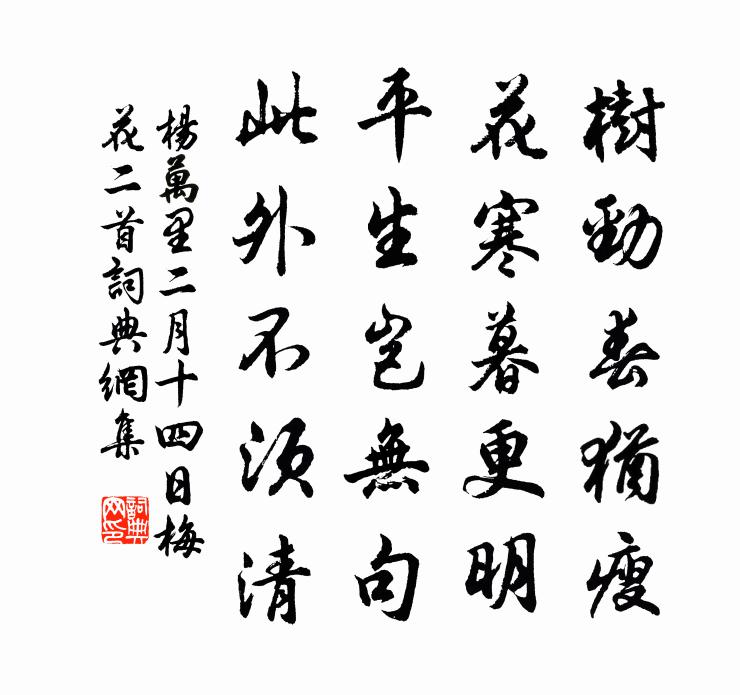 樹勁春猶瘦
花寒暮更明
平生豈無句
此外不須清
楊萬里二月十四日梅
花二首詞典網集
詞典
网印